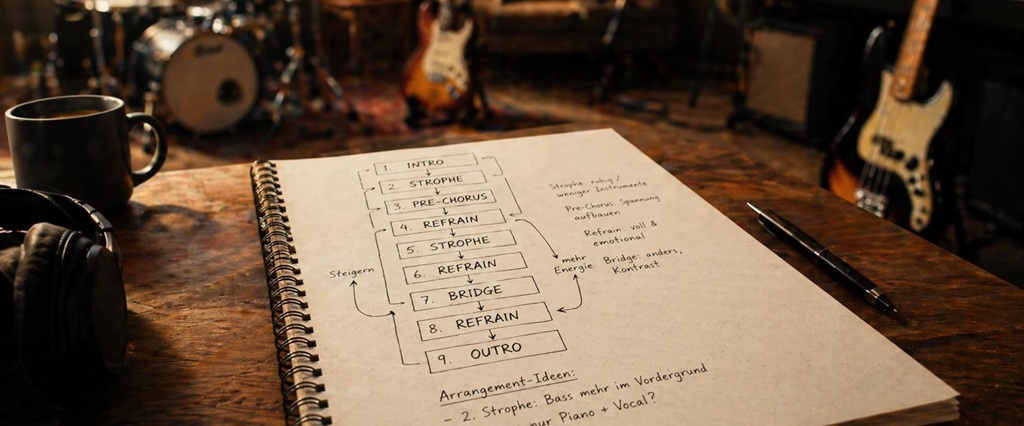 1. INTRO
2. STROPHE
3. PRE-CHORUS
4. REFRAIN
5. STROPHE
6. REFRAIN
7. BRIDGE
8. REFRAIN
9. OUTRO
Steigern
mehr
Energie
Strophe: ruhig /
weniger Instrumente
Pre-Chorus: Spannung
aufbauen
Refrain: voll &
emotional
Bridge: anders,
Kontrast
Arrangement-Ideen:
- 2. Strophe: Bass mehr im Vordergrund
nur Piano + Vocal?